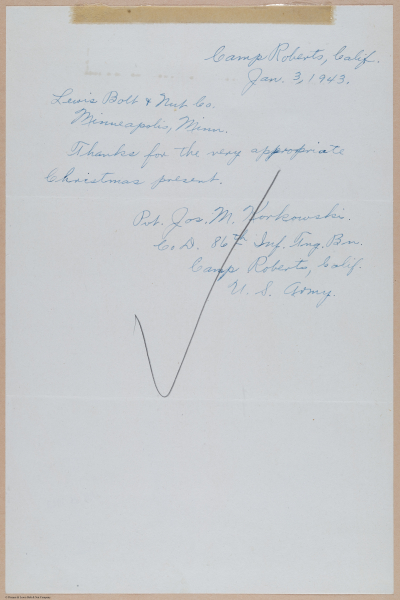 Camp Roberts, Calif.
Jan. 3, 1943.
Lewis Bolt & Nut Co.
Minneapolis, Minn.
Thanks for the very appropriate
Christmas present.
Pvt. Jos. M. Korkowski.
Co. D. 86th Inf. Trng. Bn.
Camp Roberts, Calif.
U. S. Army.